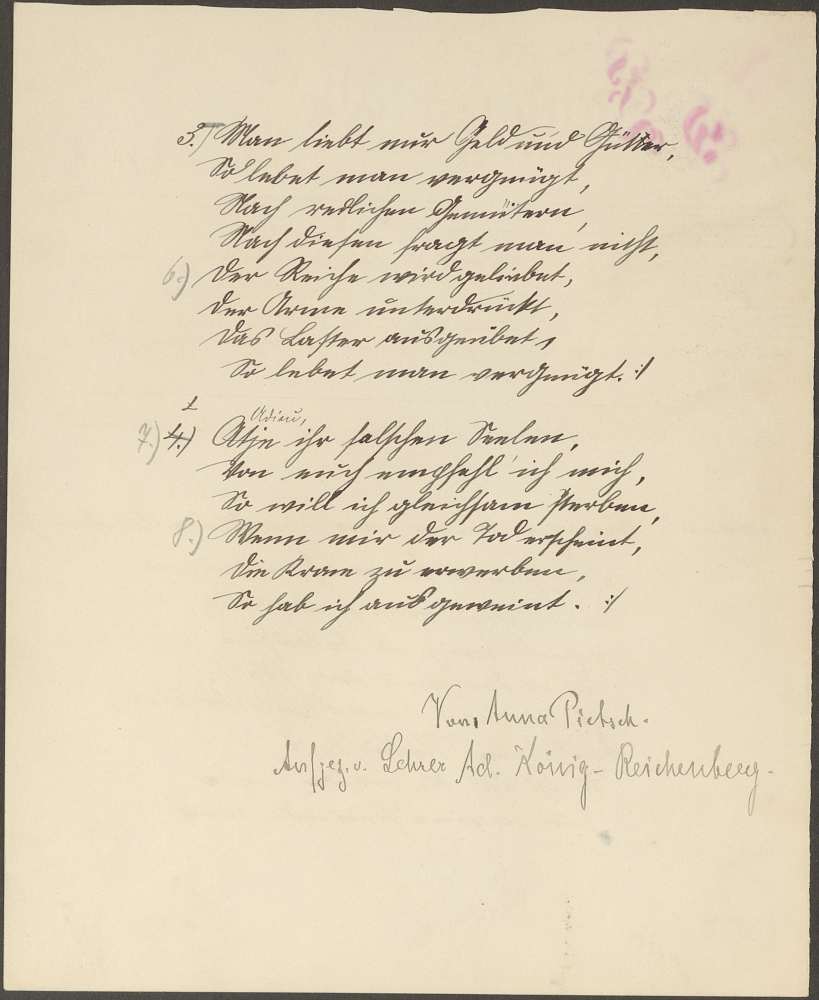 3.) Man liebt nur Geld und Gütter,
So lebet man vergnügt,
Nach redlichen Gemütern,
Nach diesen fragt man nicht,
6.) Der Reiche wird geliebet,
Der Arme unterdrückt,
Das Laster ausgeübet,
So lebet man vergnügt. :/
Adieu,
7.) 4.) Atje ihr falschen Seelen,
Von euch empfehl ich mich,
So will ich gleichsam sterben,
8.) Wenn mir der Tod erscheint,
Die Krone zu erwerben,
So hab ich ausgeweint. :/
Von: Anna Pietsch.
Aufgez. v. Lehrer Ad. König - Reichenberg.